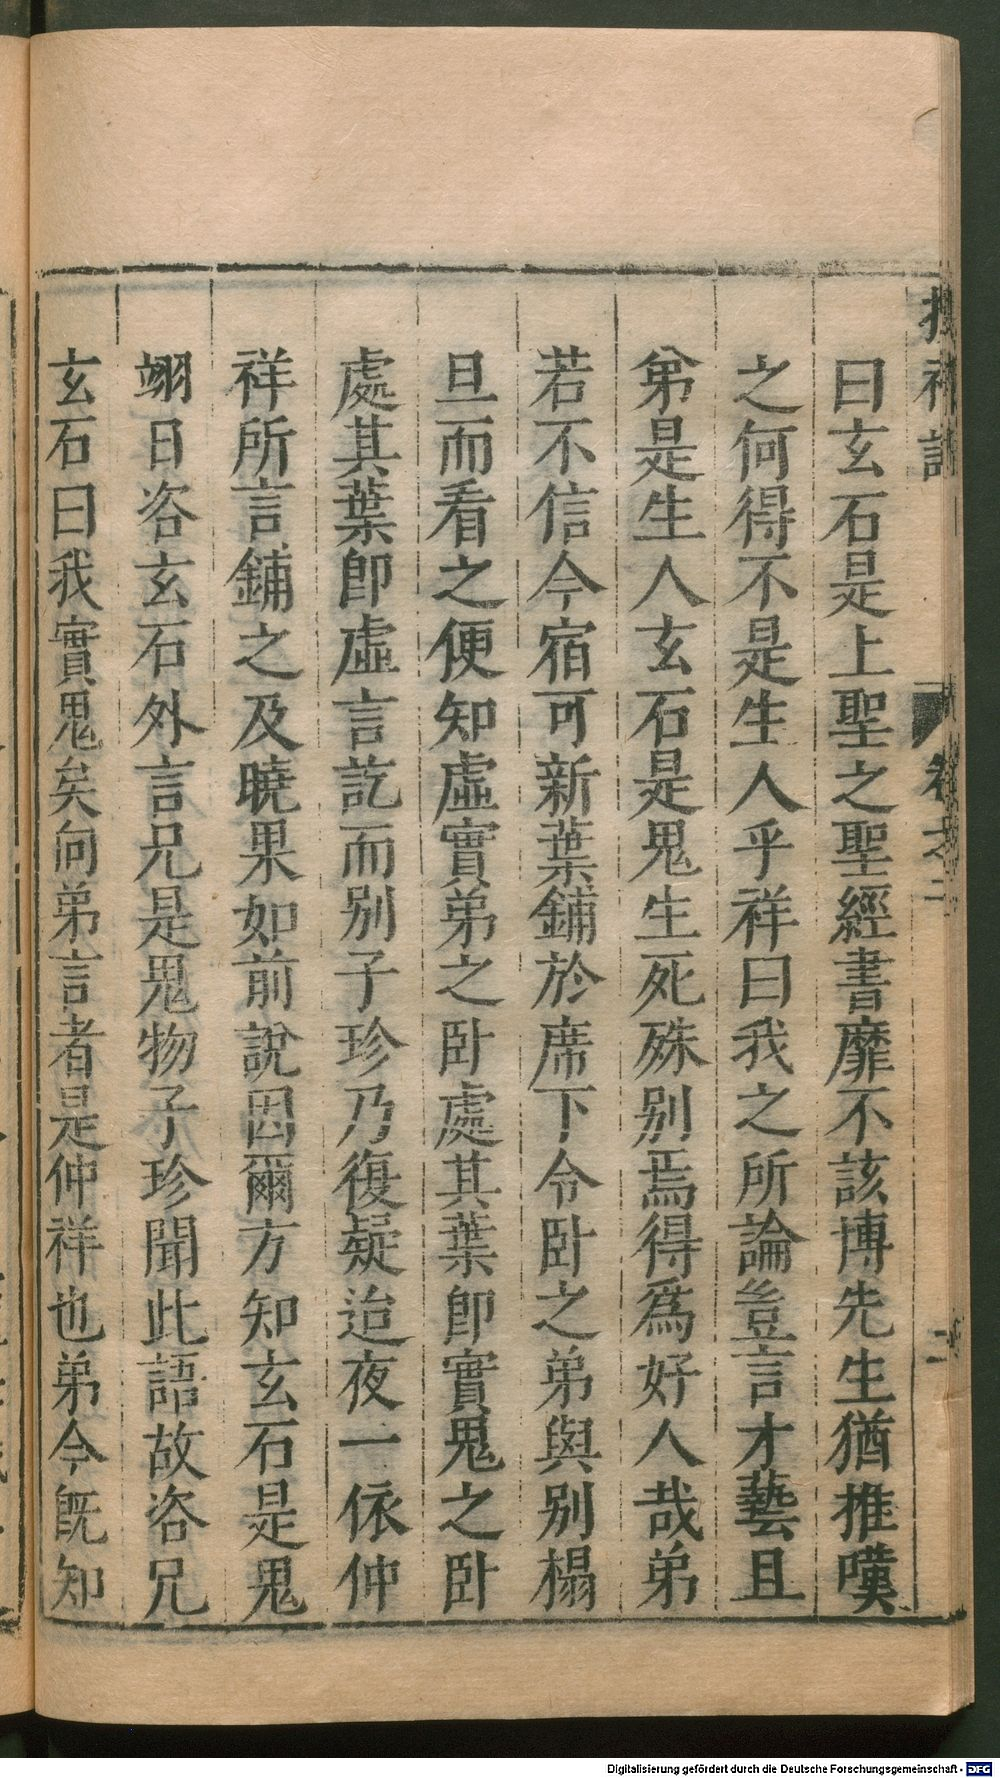 曰玄石是上聖之聖經書靡不該博先生猶推嘆
之何得不是生人乎祥曰我之所論豈言才藝且
弟是生人玄石是鬼生死殊別焉得爲好人哉弟
若不信今宿可新葉鋪於席下令卧之弟與別榻
旦而看之便知虛實弟之卧處其葉卽實鬼之卧
處其葉卽虛言訖而別子珍乃復疑迨夜一依仲
祥所言鋪之及曉果如前說因爾方知玄石是鬼
翊日咨玄石外言兄是鬼物子珍聞此語故咨兄
玄石曰我實鬼矣向弟言者是仲祥也弟今旣知
卷之二
二
Digitalisierung gefördert durch die Deutsche Forschungsgemeinschaft - DFG